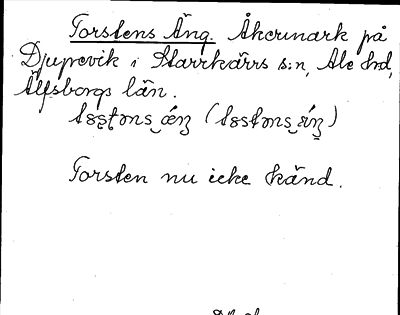 Torstens Äng. Åkermark på
Djupevik i Starrkärrs s:n, Ale hd,
Älfsborgs län.
Torsten nu icke känd.